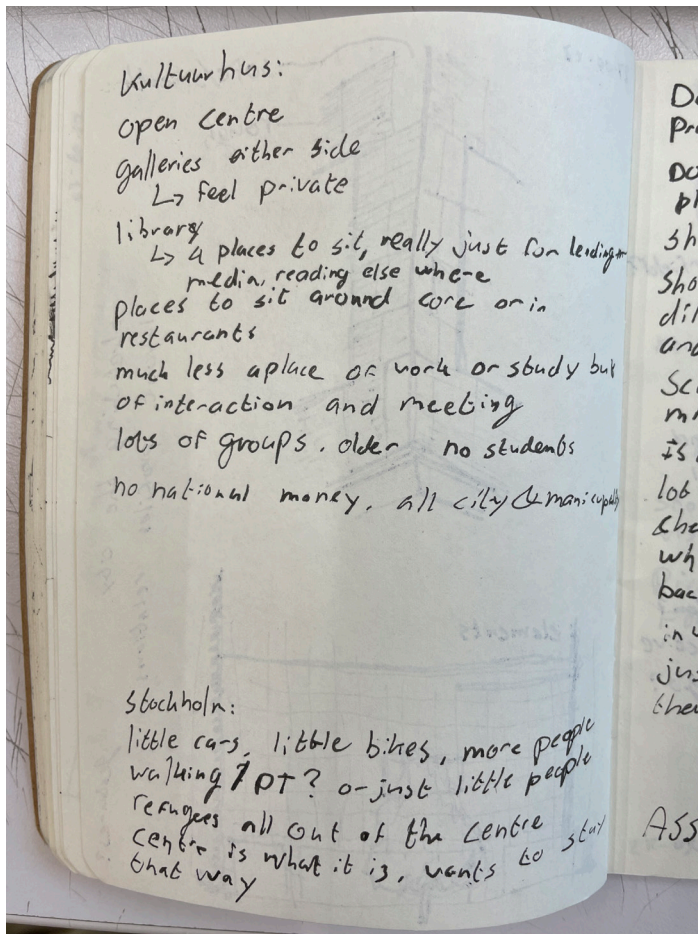 Kultuurhus:
open centre
galleries either side
↳ feel private
library
↳ 4 places to sit, really just for lending
media, reading else where
places to sit around core or in
restaurants
much less a place of work or study but
of interaction and meeting
lots of groups. older no students
no national money. all city & manicupality
Stockholm:
little cars, little bikes, more people
walking / pt? or just little people
refugees all out of the centre
centre is what it is, wants to stay
that way
elements
Do
Pr
DO
ph
sh
sho
dil
and
Sc
m
Is
lot
che
wh
bac
in
jus
the
ASS